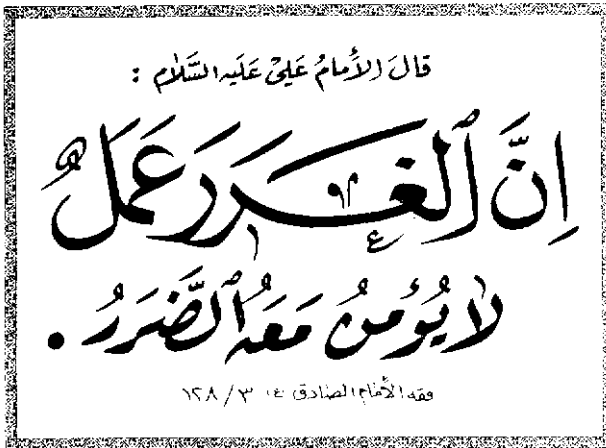 قَالَ الْأَمَامُ عَلِيْ عَلَيْهِ السَّلَام :
اِنَّ ٱلْغَرَرَ عَمَلٌ
لَا يُؤْمَنُ مَعَهُ ٱلضَّرَرُ .
فقه الأمام الصادق ع ٣/١٢٨